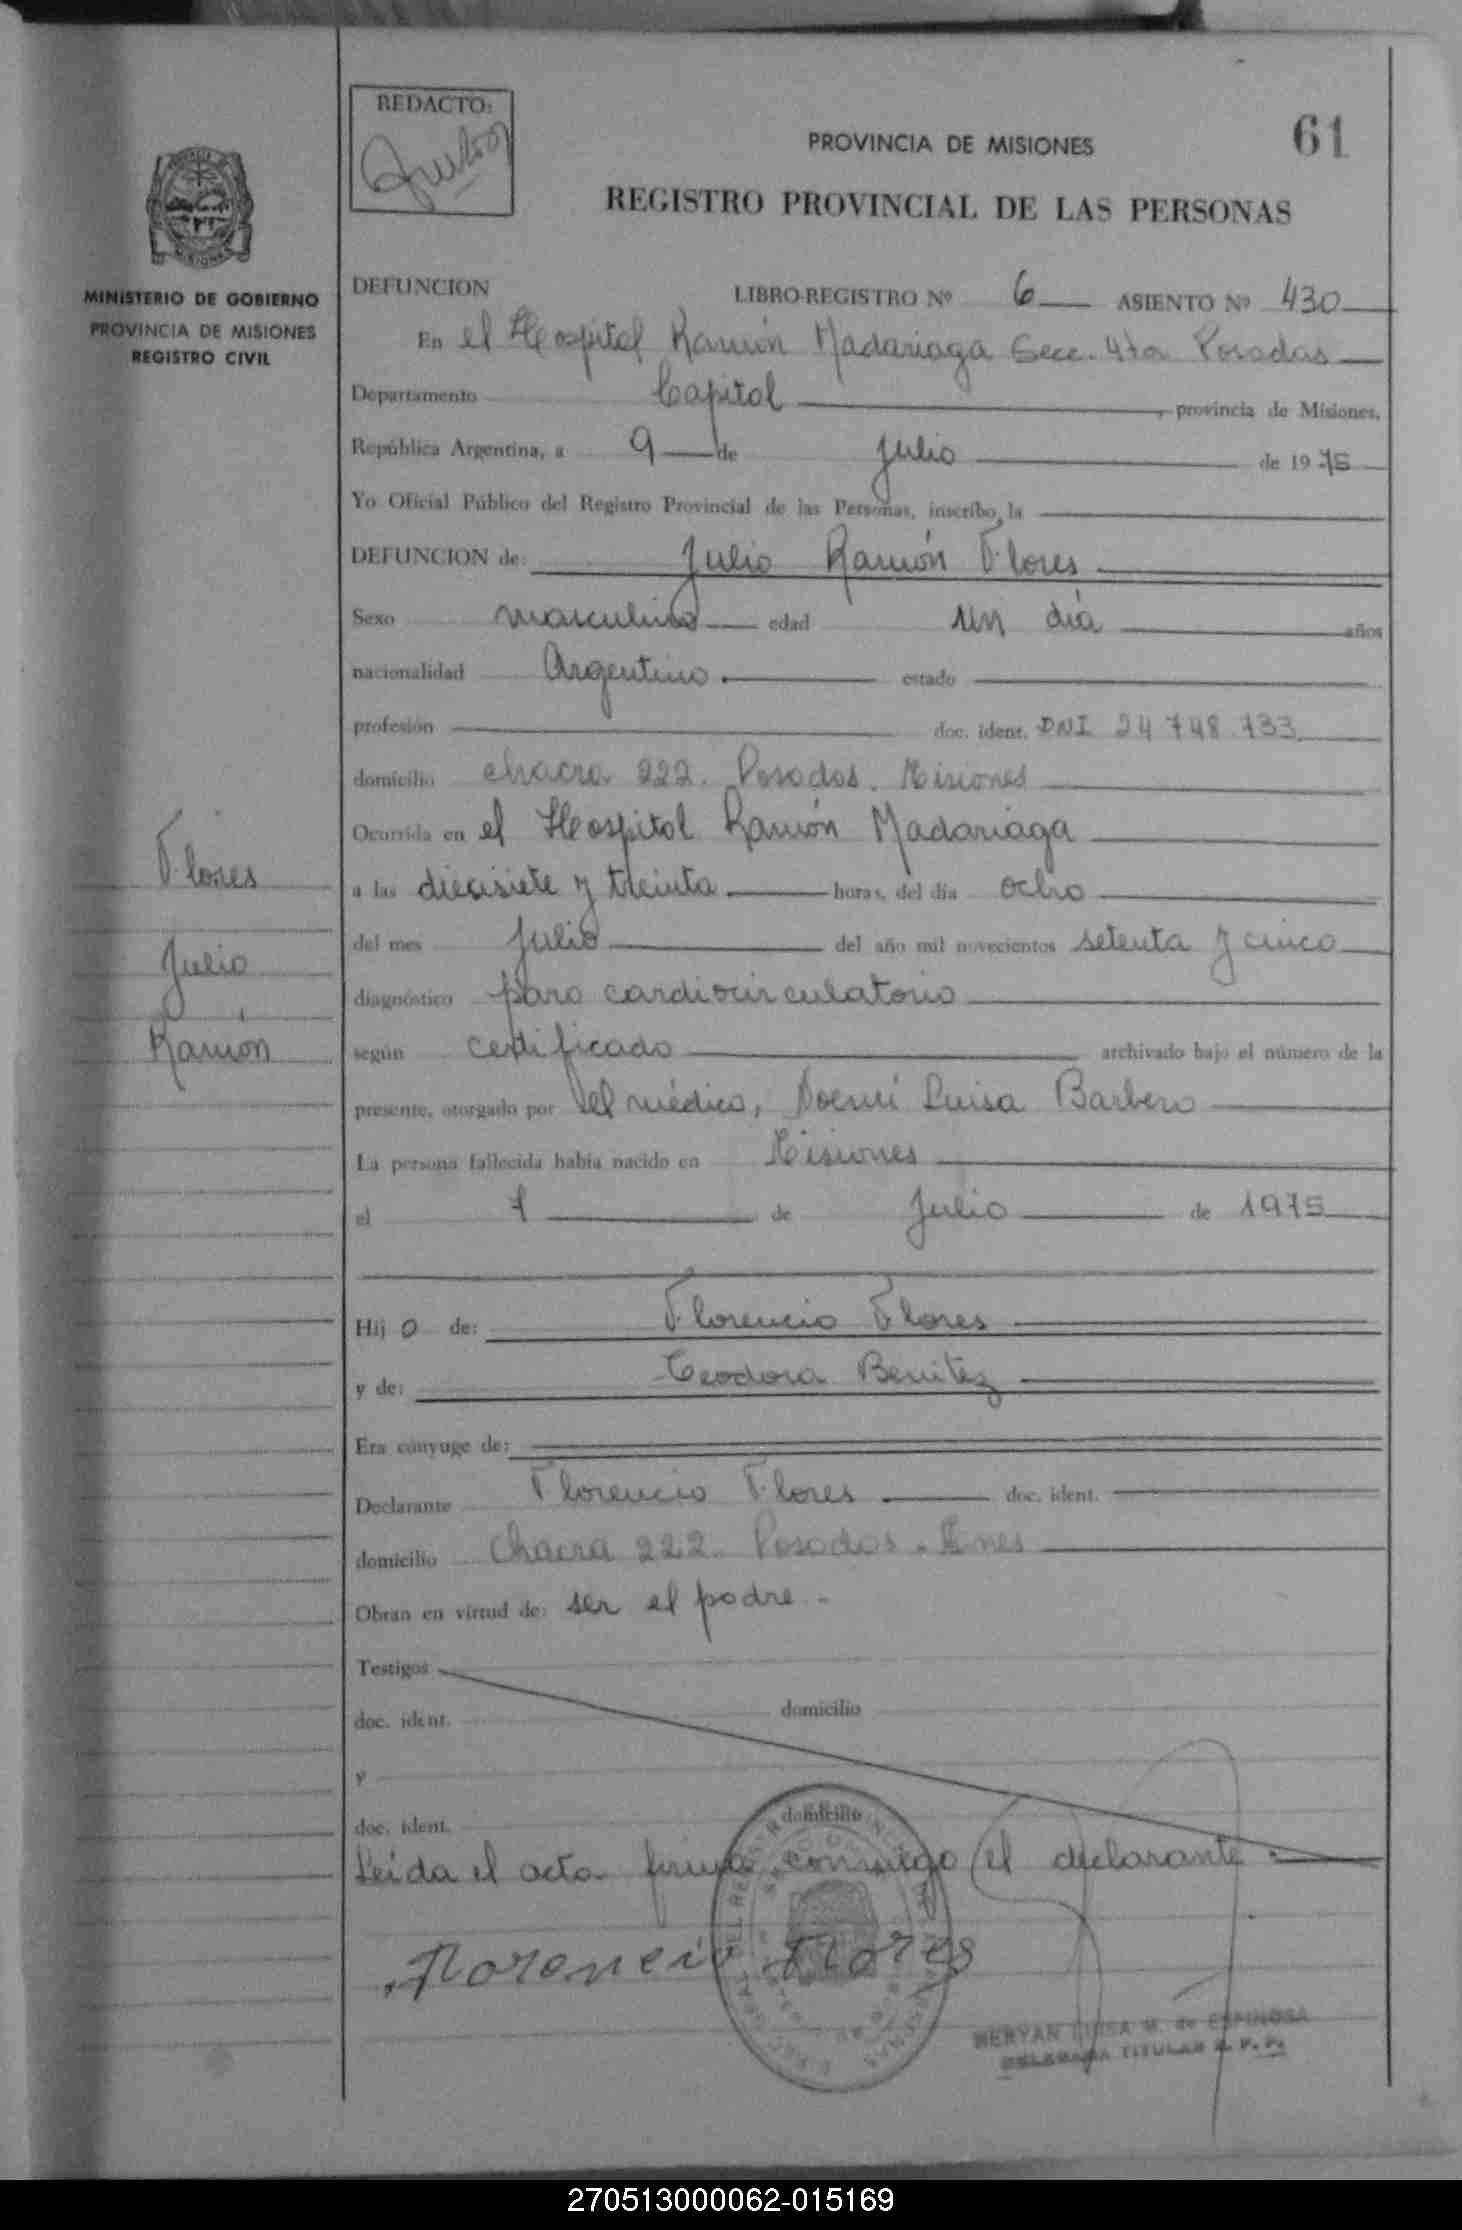 REDACTO:
PROVINCIA DE MISIONES
61
REGISTRO PROVINCIAL DE LAS PERSONAS
MINISTERIO DE GOBIERNO
PROVINCIA DE MISIONES
REGISTRO CIVIL
DEFUNCION LIBRO-REGISTRO Nº 6 ASIENTO Nº 430
En el Hospital Ramón Madariaga Secc. 4ta Posadas
Departamento Capital, provincia de Misiones,
República Argentina, a 9 de Julio de 1975
Yo Oficial Público del Registro Provincial de las Personas, inscribo, la
DEFUNCION de: Julio Ramón Flores
Sexo masculino edad un día años
nacionalidad Argentino estado
profesión doc. ident. DNI 24 748 733
domicilio chacra 222. Posadas. Misiones
Ocurrida en el Hospital Ramón Madariaga
a las diecisiete y treinta horas, del día ocho
del mes Julio del año mil novecientos setenta y cinco
diagnóstico paro cardiocirculatorio
según certificado archivado bajo el número de la
presente, otorgado por el médico, Noemí Luisa Barbero
La persona fallecida había nacido en Misiones
el 7 de Julio de 1975
Hij o de: Florencio Flores
y de: Teodora Benitez
Era cónyuge de:
Declarante Florencio Flores doc. ident.
domicilio Chacra 222. Posadas. Mnes
Obran en virtud de: ser el padre.-
Testigos
doc. ident. domicilio
y
doc. ident. domicilio
Leida el acta firma conmigo el declarante.
Florencio Flores
Flores
Julio
Ramón
LUISA M. de ESPINOSA
DELEGADA TITULAR R. P. P.
270513000062-015169